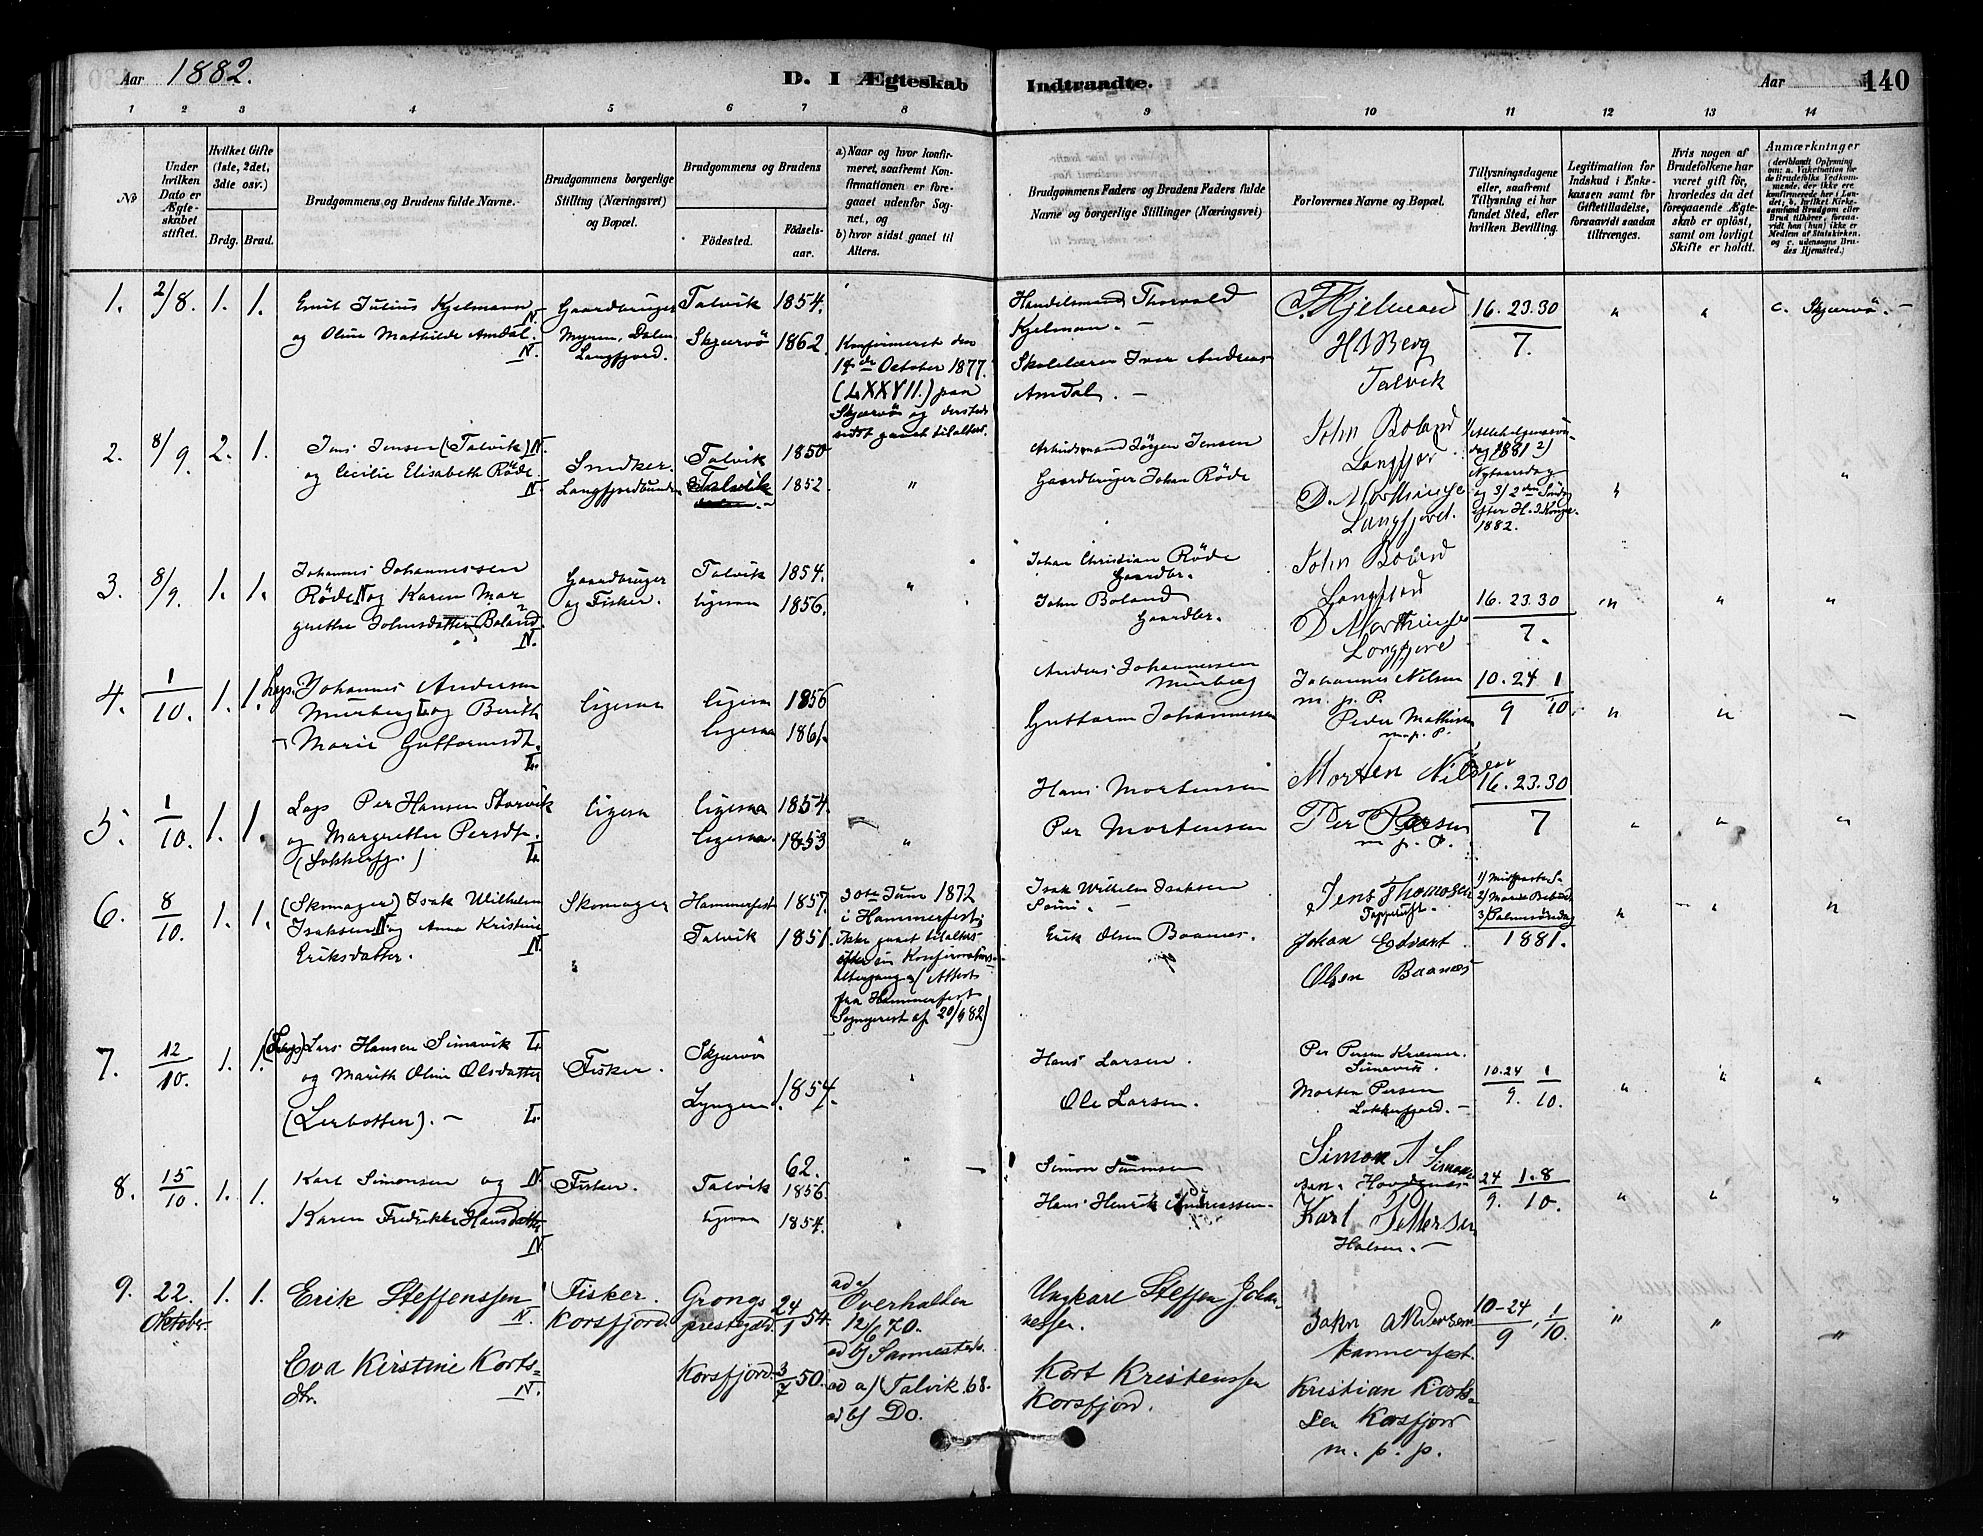 Aar 1882.
D. I Ægteskab Indtraadte.
Aar
140
1 2 3 4 5 6 7 8 9 10 11 12 13 14
No
Under hvilken Dato er Ægteskabet stiftet.
Hvilket Gifte (1ste, 2det, 3die osv.)
Brdg. Brud.
Brudgommens og Brudens fulde Navne.
Brudgommens borgerlige Stilling (Næringsvei) og Bopæl.
Brudgommens og Brudens
Fødested.
Fødselsaar.
a) Naar og hvor konfirmeret, saafremt Konfirmationen er foregaaet udenfor Sognet, og
b) hvor sidst gaaet til Alters.
Brudgommens Faders og Brudens Faders fulde Navne og borgerlige Stillinger (Næringsvei)
Forlovernes Navne og Bopæl.
Tillysningsdagene eller, saafremt Tillysning ei har fundet Sted, efter hvilken Bevilling.
Legitimation for Indskud i Enkekassen samt for Giftetilladelse, forsaavidt saadan tiltrænges.
Hvis nogen af Brudefolkene har været gift før, hvorledes da det foregaaende Ægteskab er opløst, samt om lovligt Skifte er holdt.
Anmærkninger
1. 2/8. 1. 1.
Emil Julius Kjelmann N.
og Oline Mathilde Amdal. N.
Gaardbruger
Myren, Dalen
Langfjord.
Talvik 1854.
Skjærvö 1862.
Konfirmeret den
14de October 1877.
(LXXVII.) paa
Skjærvö og dersteds
sidst gaaet til alters.
Handelsmand Thorvald
Kjelman. —
Skolelærer Iver Andreas
Amdal. —
T. Kjelmand
H B Berg
Talvik
16. 23. 30
7.
c. Skjærvö. —
2. 8/9. 2. 1.
Jens Jensen (Talvik) N.
og Cecilie Elisabeth Röde. N.
Snedker.
Langfjordbunden
Talvik 1850
Talvik 1852
Arbeidsmand Jørgen Jensen
Gaardbruger Johan Röde
John Boland
Langfjor
D. Morthinse
Langfjord.
1881 2)
Nytaarsdag
og 3/ 2den Sönd.
efter H. 3 Konge.
1882.
3. 8/9. 1. 1.
Johannes Johannessen
Röde N og Karen Mar
grethe Johnsdatter Boland. N.
Gaardbruger
og Fisker.
Talvik 1854.
ligesaa 1856.
Johan Christian Röde
Gaardbr.
John Boland
Gaardbr.
John Boland
Langfjord
D Morthinse
Langfjord
16. 23. 30
7.
4. 1/10. 1. 1.
Lap. Johannes Andersen
Murberg L. og Berith
Marie Guttormsdt. L.
ligesaa
ligesaa 1856
ligesaa 1861.
Anders Johannessen
Murberg
Guttorm Johannessen
Johannes Nilsen
m. p. P.
Peder Mathisen
m. p. P.
10. 24 1
9 10.
5. 1/10. 1. 1.
Lap Per Hansen Storvik
og Margrethe Persdt.
(Lokkerfj.) L.
ligesa
ligesaa 1854.
ligesaa. 1853
Hans Mortensen
Per Mortensen
Morten Nilsen
Per Persen
m. p. P.
16. 23. 30
7
6. 8/10. 1. 1.
(Skomager) Isak Wilhelm
Isaksen N og Anna Kristine
Eriksdatter. N.
Skomager
Hammerfest 1857.
Talvik 1851.
30te Juni 1872
i Hammerfest;
ikke gaaet til alters
efter sin Konfirmations
altergang a/ Attest
fra Hammerfest
Sogneprest af 20/9 82)
Isak Wilhelm Isaksen
Erik Olsen Baanes.
Jens Thomasen
Johan Edvart
Olsen Baanæs
1881.
7. 12/10. 1. 1.
(Lap) Lars Hansen Simavik L.
og Marith Oline Olsdatter
(Lerbotten). — L.
Fisker.
Skjervö
Lyngen. 1854.
Hans Larsen.
Ole Larsen.
Per Persen Kræmer.
Simavik
Morten Persen
Lokkerfjord. —
10. 24 1
9. 10.
8. 15/10. 1. 1.
Karl Simonsen og N.
Karen Fredrikke Hansdatter N.
Fisker.
Talvik 62. 1856.
ligesaa 1854.
Simon Simonsen
Hans Henrik Andreassen.
Simon A Simon
sen. Hovdenes.
Karl Pettersen
Halsen. —
24 1. 8
9. 10.
9. 22. Oktober. 1. 1.
Erik Steffenssen N.
Eva Kirstine Korts-
dtr. N.
Fisker.
Korsfjord
Grongs
prestegæld. 24/1 54.
Korsfjord 3/7 50.
ad a/
Overhalden
12/6 70.
ad b/ Sammesteds.
ad a/ Talvik. 68.
ad b/ Do.
Ungkarl Steffen Johan-
nessen.
Kort Kristenssen
Korsfjord.
John Andersen
Hammerfest.
Kristian Korts-
sen Korsfjord
m. p. p.
10-24, 1
9 10.